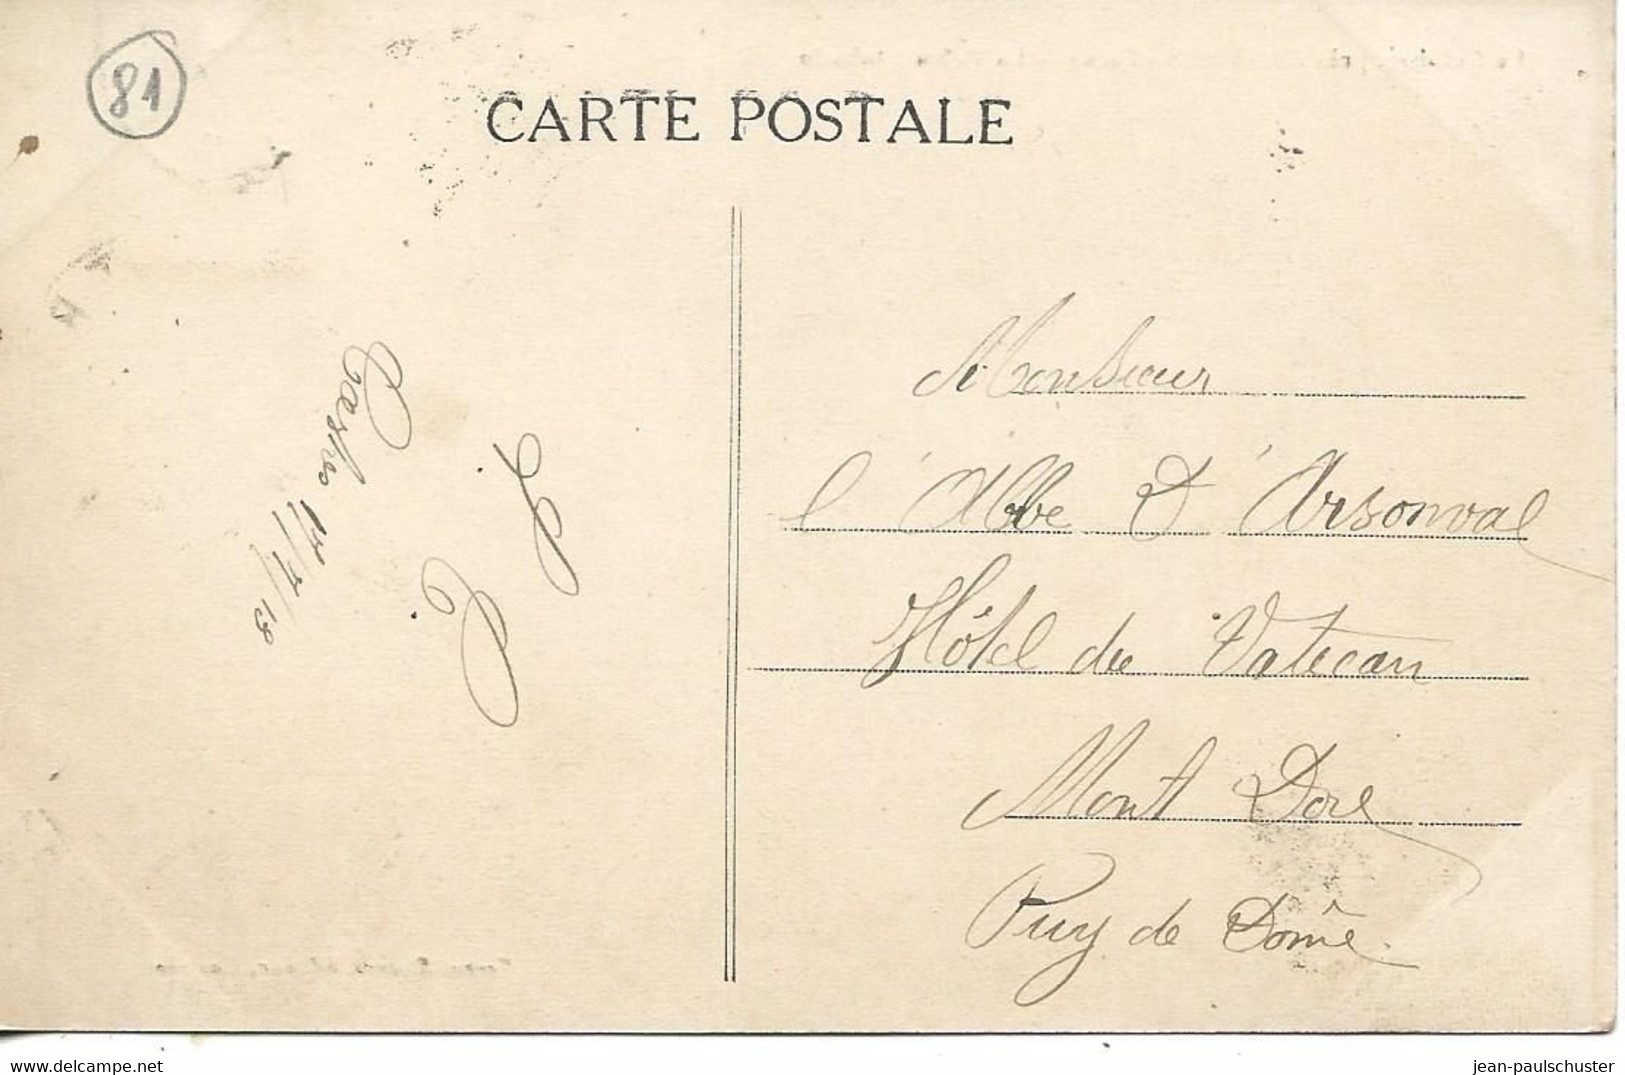 81
CARTE POSTALE
Castres 17/7/13
L. C.
Monsieur
l'Abbe D'Arsonval
Hôtel du Vatican
Mont Dore
Puy de Dôme.
jean-paulschuster